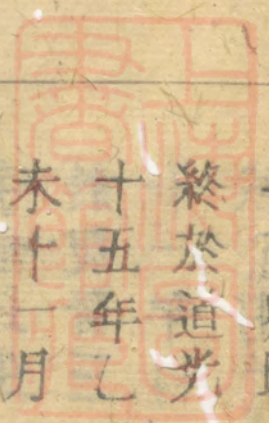 終於道光
十五年乙
未十一月